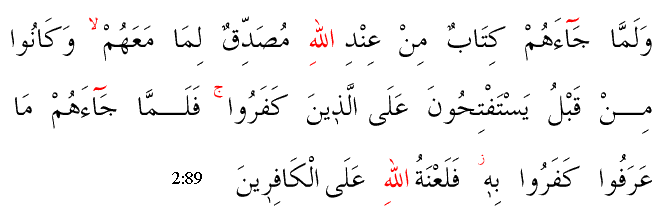 وَلَمَّا جَٓاءَهُمْ كِتَابٌ مِنْ عِنْدِ اللهِ مُصَدِّقٌ لِمَا مَعَهُمْۙ وَكَانُوا
مِـنْ قَبْلُ يَسْتَفْتِحُونَ عَلَى الَّذ۪ينَ كَفَرُواۚ فَلَـمَّا جَٓاءَهُمْ مَا
عَرَفُوا كَفَرُوا بِه۪ۘ فَلَعْنَةُ اللهِ عَلَى الْكَافِر۪ينَ 2:89